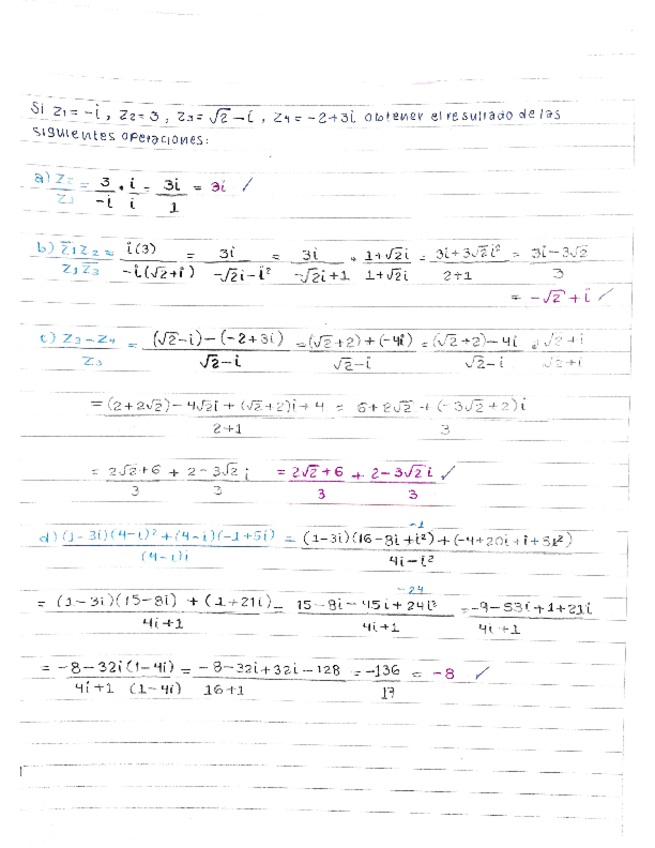 Si z₁ = -i , z₂ = 3 , z₃ = √2 - i , z₄ = -2+3i obtener el resultado de las
siguientes operaciones:
a) z₂/z₁ = 3/-i · i/i = 3i/1 = 3i ✓
b) z̄₁z₂/z₁z̄₃ = i(3)/-i(√2+i) = 3i/-√2i-i² = 3i/-√2i+1 · 1+√2i/1+√2i = 3i+3√2i²/2+1 = 3i-3√2/3
= -√2 + i ✓
c) z₃-z₄/z₃ = (√2-i)-(-2+3i)/√2-i = (√2+2)+(-4i)/√2-i = (√2+2)-4i/√2-i · √2+i/√2+i
= (2+2√2)-4√2i+(√2+2)i+4/2+1 = 6+2√2+(-3√2+2)i/3
= 2√2+6/3 + 2-3√2/3 i = 2√2+6/3 + 2-3√2i/3 ✓
d) (1-3i)(4-i)²+(4-i)(-1+5i)/(4-i)i = (1-3i)(16-8i+i²)+(-4+20i+i+5i²)/4i-i²
-1
= (1-3i)(15-8i)+(1+21i)/4i+1 = 15-8i-45i+24i²/4i+1 = -9-53i+1+21i/4i+1
-24
= -8-32i(1-4i)/4i+1 (1-4i) = -8-32i+32i-128/16+1 = -136/17 = -8 ✓